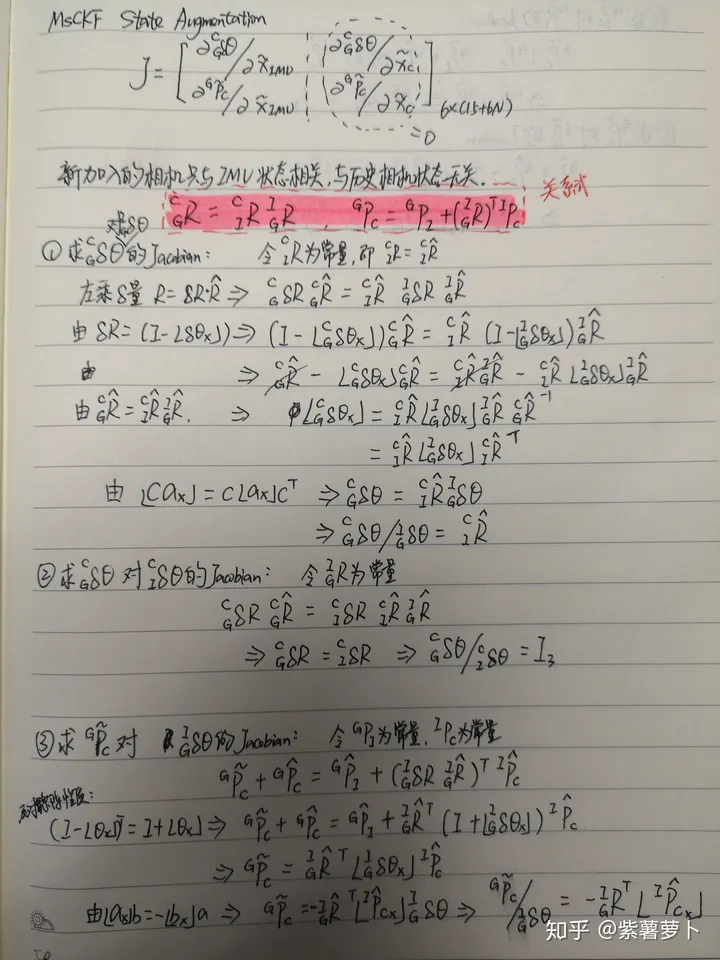 MSCKF State Augmentation
J = [ ∂ᶜ_Gδθ/∂x̃_IMU  ∂ᶜ_Gδθ/∂x̃_C
∂ᴳP̃_C/∂x̃_IMU  ∂ᴳP̃_C/∂x̃_C ] 6×(15+6N)
=0
新加入的相机只与IMU状态相关,与历史相机状态无关.
关系式
ᶜ_GR = ᶜ_IR ᴵ_GR , ᴳP_C = ᴳP_I + (ᴵ_GR)ᵀ ᴵP_C
① 求ᶜ_Gδθ的Jacobian: 令ᶜ_IR为常量,即 ᶜ_IR = ᶜ_IR̂
左乘δ量 R = δR·R̂ ⇒ ᶜ_GδR ᶜ_GR̂ = ᶜ_IR̂ ᴵ_GδR ᴵ_GR̂
由 δR = (I-⌊δθ×⌋) ⇒ (I-⌊ᶜ_Gδθ×⌋)ᶜ_GR̂ = ᶜ_IR̂ (I-⌊ᴵ_Gδθ×⌋)ᴵ_GR̂
⇒ ᶜ_GR̂ - ⌊ᶜ_Gδθ×⌋ᶜ_GR̂ = ᶜ_IR̂ ᴵ_GR̂ - ᶜ_IR̂ ⌊ᴵ_Gδθ×⌋ᴵ_GR̂
由 ᶜ_GR̂ = ᶜ_IR̂ ᴵ_GR̂. ⇒ ⌊ᶜ_Gδθ×⌋ = ᶜ_IR̂ ⌊ᴵ_Gδθ×⌋ ᴵ_GR̂ ᶜ_GR̂⁻¹
= ᶜ_IR̂ ⌊ᴵ_Gδθ×⌋ ᶜ_IR̂ᵀ
由 ⌊Ca×⌋ = C⌊a×⌋Cᵀ ⇒ ᶜ_Gδθ = ᶜ_IR̂ ᴵ_Gδθ
⇒ ᶜ_Gδθ/ᴵ_Gδθ = ᶜ_IR̂
② 求ᶜ_Gδθ 对ᶜ_Iδθ的Jacobian: 令ᴵ_GR为常量
ᶜ_GδR ᶜ_GR̂ = ᶜ_IδR ᶜ_IR̂ ᴵ_GR̂
⇒ ᶜ_GδR = ᶜ_IδR ⇒ ᶜ_Gδθ/ᶜ_Iδθ = I₃
③ 求ᴳP̃_C 对 ᴵ_Gδθ的Jacobian: 令ᴳP_I为常量, ᴵP_C为常量
ᴳP̃_C + ᴳP̂_C = ᴳP̂_I + (ᴵ_GδR ᴵ_GR̂)ᵀ ᴵP̂_C
(I-⌊θ×⌋)ᵀ = I+⌊θ×⌋ ⇒ ᴳP̃_C + ᴳP̂_C = ᴳP̂_I + ᴵ_GR̂ᵀ (I+⌊ᴵ_Gδθ×⌋) ᴵP̂_C
⇒ ᴳP̃_C = ᴵ_GR̂ᵀ ⌊ᴵ_Gδθ×⌋ ᴵP̂_C
由⌊a×⌋b = -⌊b×⌋a ⇒ ᴳP̃_C = -ᴵ_GR̂ᵀ⌊ᴵP̂_C×⌋ᴵ_Gδθ ⇒ ᴳP̃_C/ᴵ_Gδθ = -ᴵ_GR̂ᵀ ⌊ᴵP̂_C×⌋
知乎 @紫薯萝卜